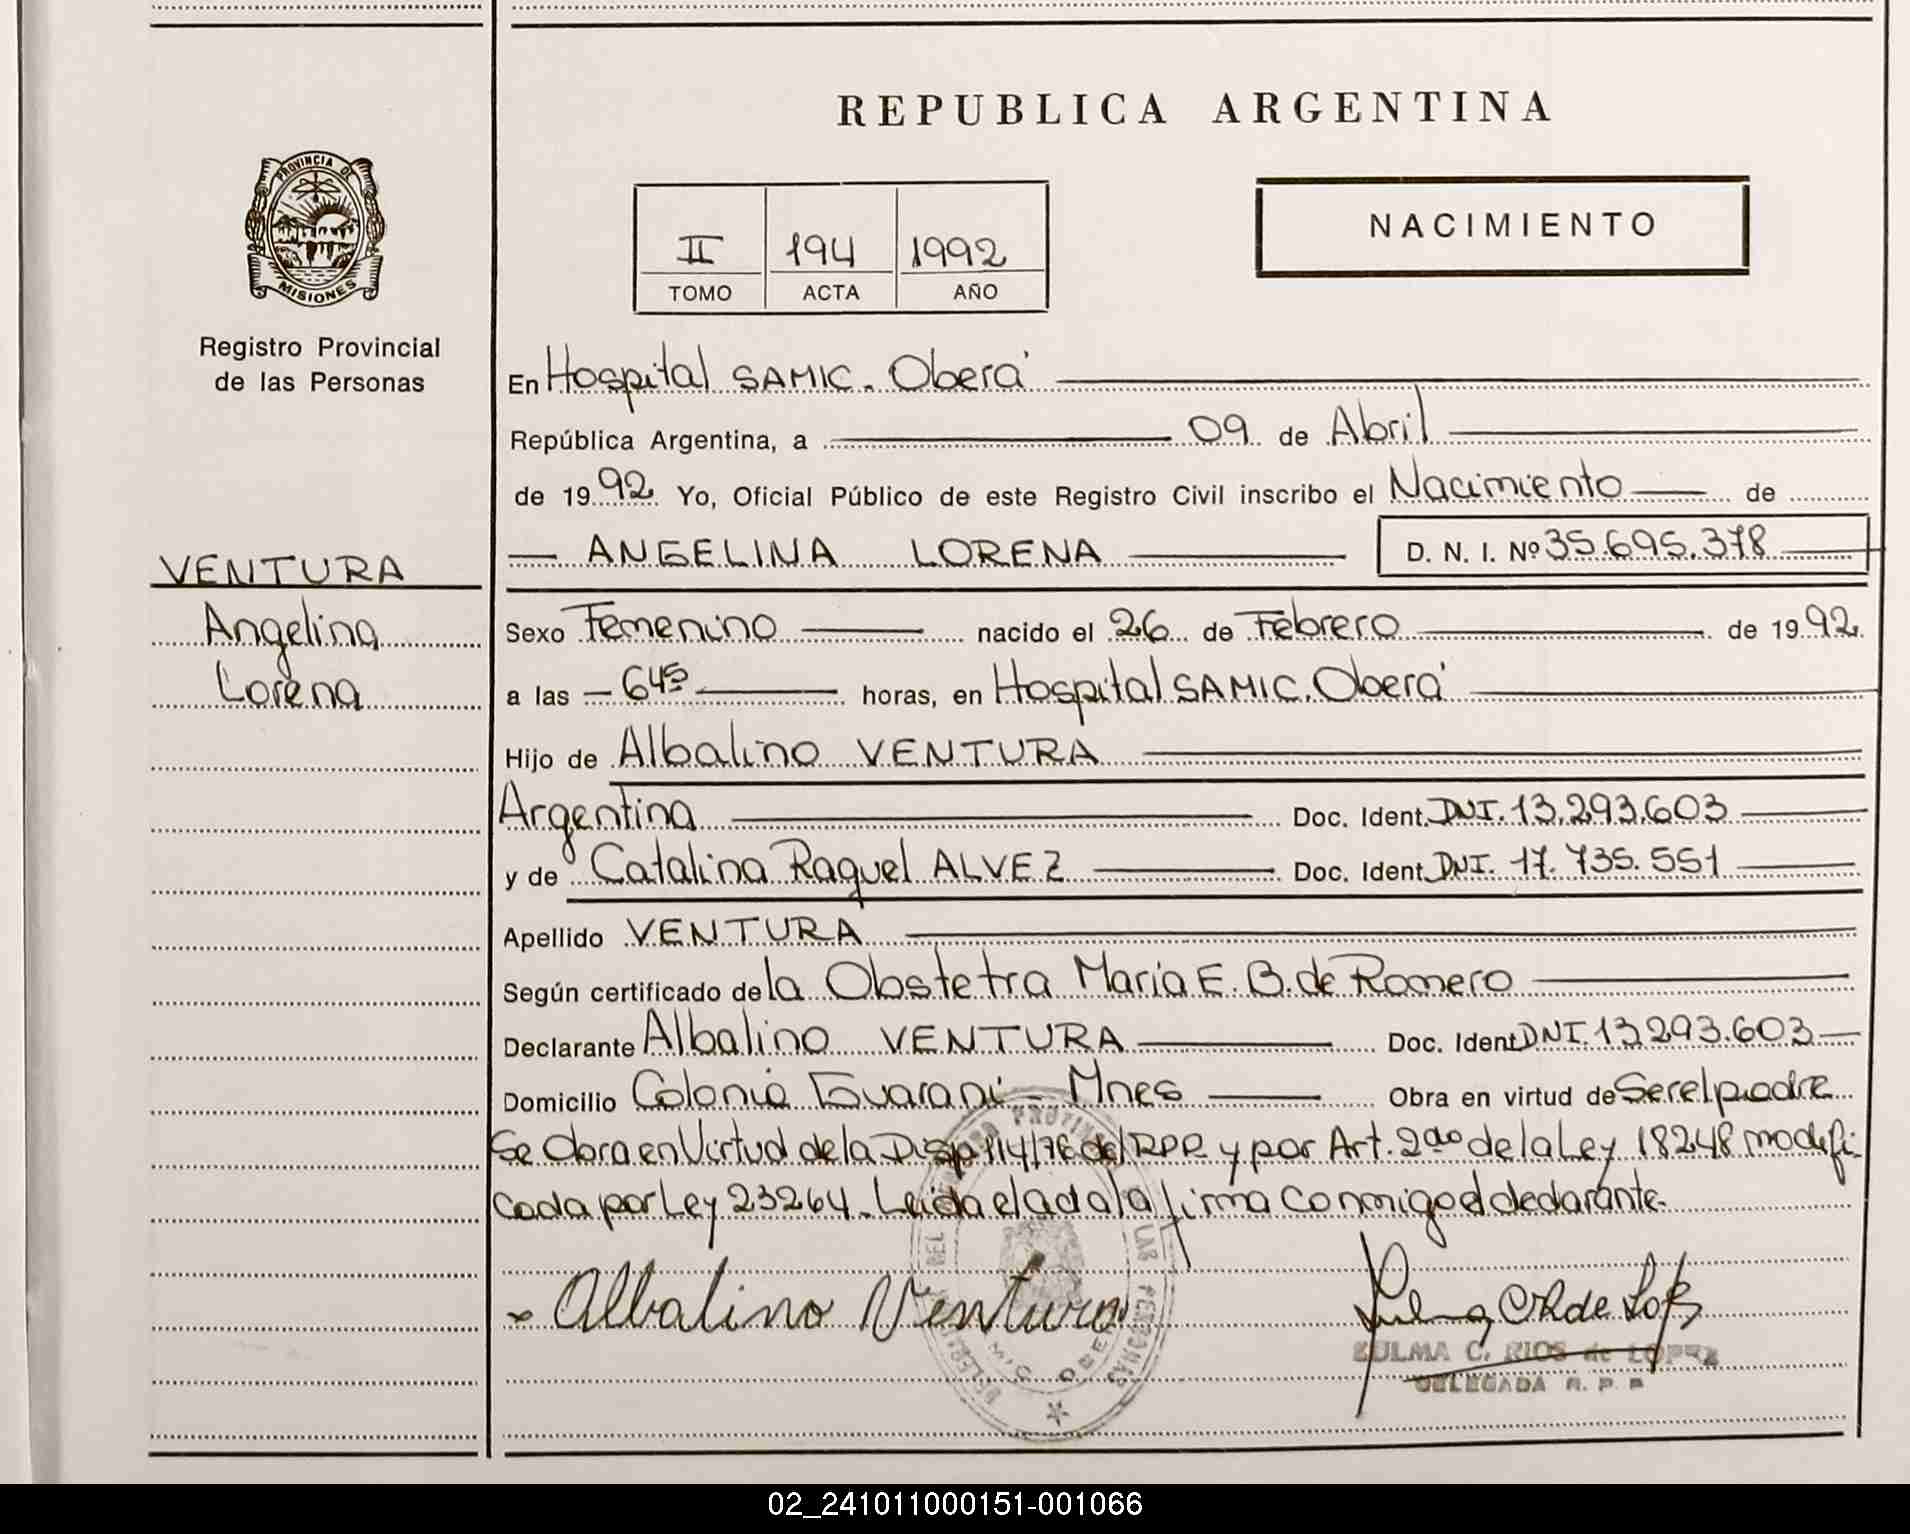 REPUBLICA ARGENTINA
PROVINCIA DE
MISIONES
Registro Provincial
de las Personas
II 194 1992
TOMO ACTA AÑO
NACIMIENTO
En Hospital SAMIC. Oberá
República Argentina, a 09 de Abril
de 1992 Yo, Oficial Público de este Registro Civil inscribo el Nacimiento de
ANGELINA LORENA D. N. I. Nº 35.695.378
VENTURA
Angelina
Lorena
Sexo Femenino nacido el 26 de Febrero de 1992.
a las 645 horas, en Hospital SAMIC. Oberá
Hijo de Albalino VENTURA
Argentina Doc. Ident. DNI. 13.293.603
y de Catalina Raquel ALVEZ Doc. Ident. DNI. 17.735.551
Apellido VENTURA
Según certificado de la Obstetra María E. B. de Romero
Declarante Albalino VENTURA Doc. Ident. DNI. 13.293.603
Domicilio Colonia Guaraní - Mnes Obra en virtud de Ser el padre
Se Obra en Virtud de la Disp 114/76 del RPP y por Art. 2do de la Ley 18248 modifi-
cada por Ley 23264. Leída el acta la firma conmigo el declarante.
Albalino Ventura
ZULMA C. RIOS de LOPEZ
DELEGADA R. P. P.
02_241011000151-001066